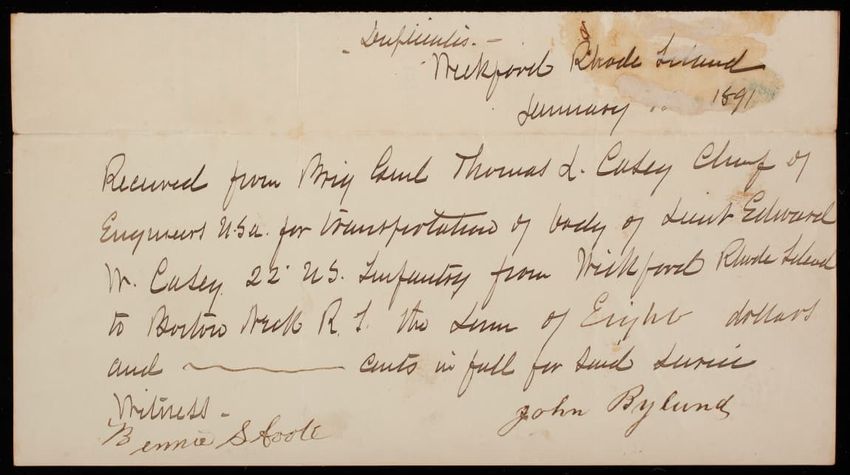 Duplicate.
Wickford Rhode Island
January 1891
Received from Brig Genl Thomas L. Casey Chief of
Engineers U.S.A. for transportation of body of Lieut Edward
W. Casey 22" U.S. Infantry from Wickford Rhode Island
to Boston Neck R. I. the sum of Eight dollars
and cents in full for said service
Witness
John Bylund
Bennie S